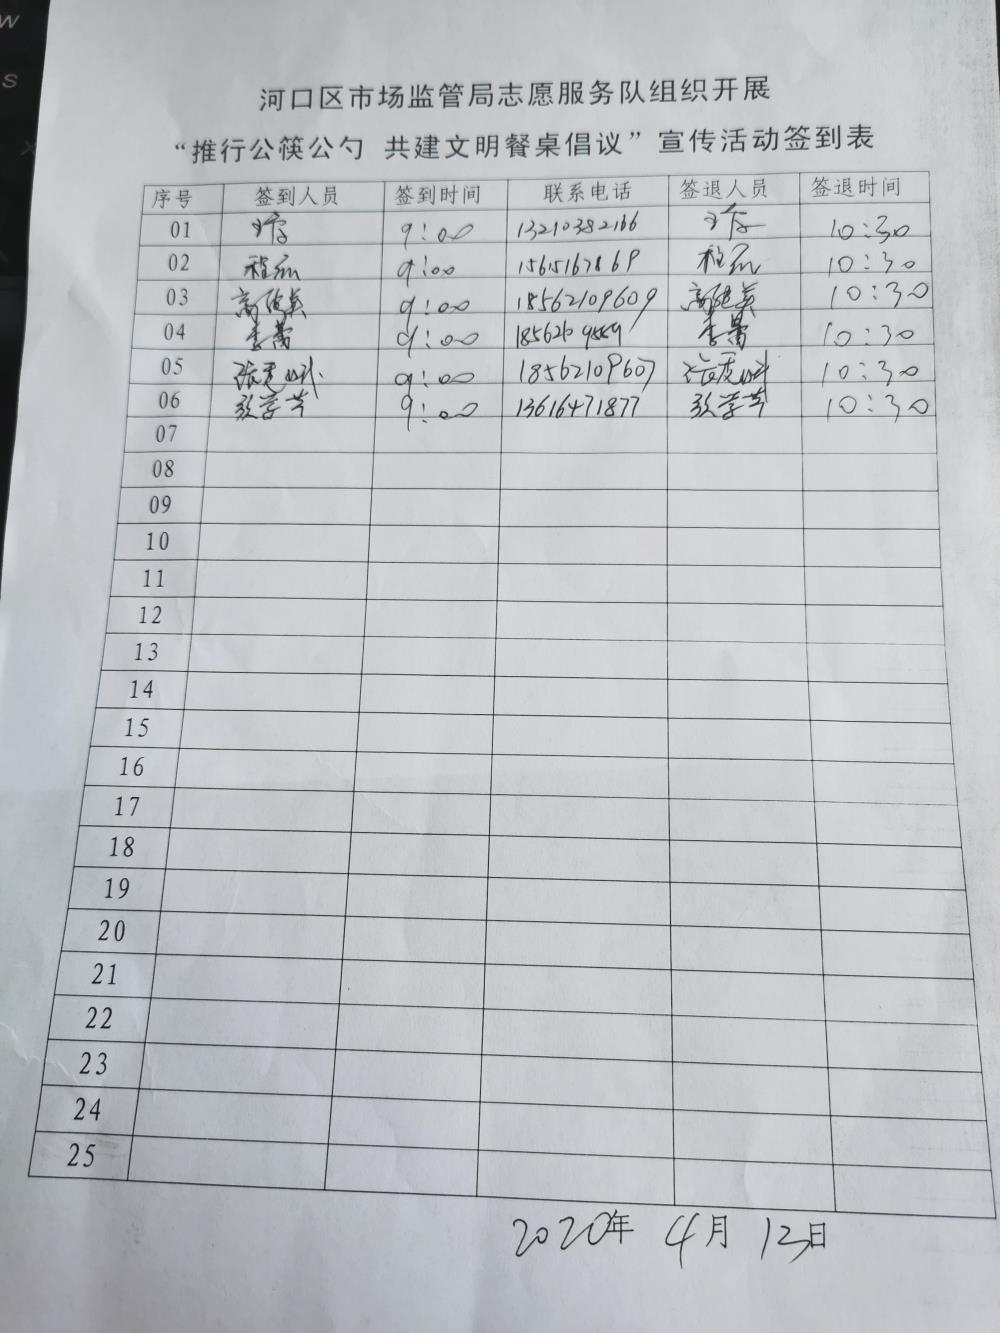 河口区市场监管局志愿服务队组织开展
“推行公筷公勺 共建文明餐桌倡议”宣传活动签到表
序号 签到人员 签到时间 联系电话 签退人员 签退时间
01 9:00 13210382166 10:30
02 9:00 15615167869 10:30
03 9:00 18562109609 10:30
04 李蕾 9:00 李蕾 10:30
05 9:00 18562109607 10:30
06 9:00 13616471877 10:30
07
08
09
10
11
12
13
14
15
16
17
18
19
20
21
22
23
24
25
2020年 4月 13日